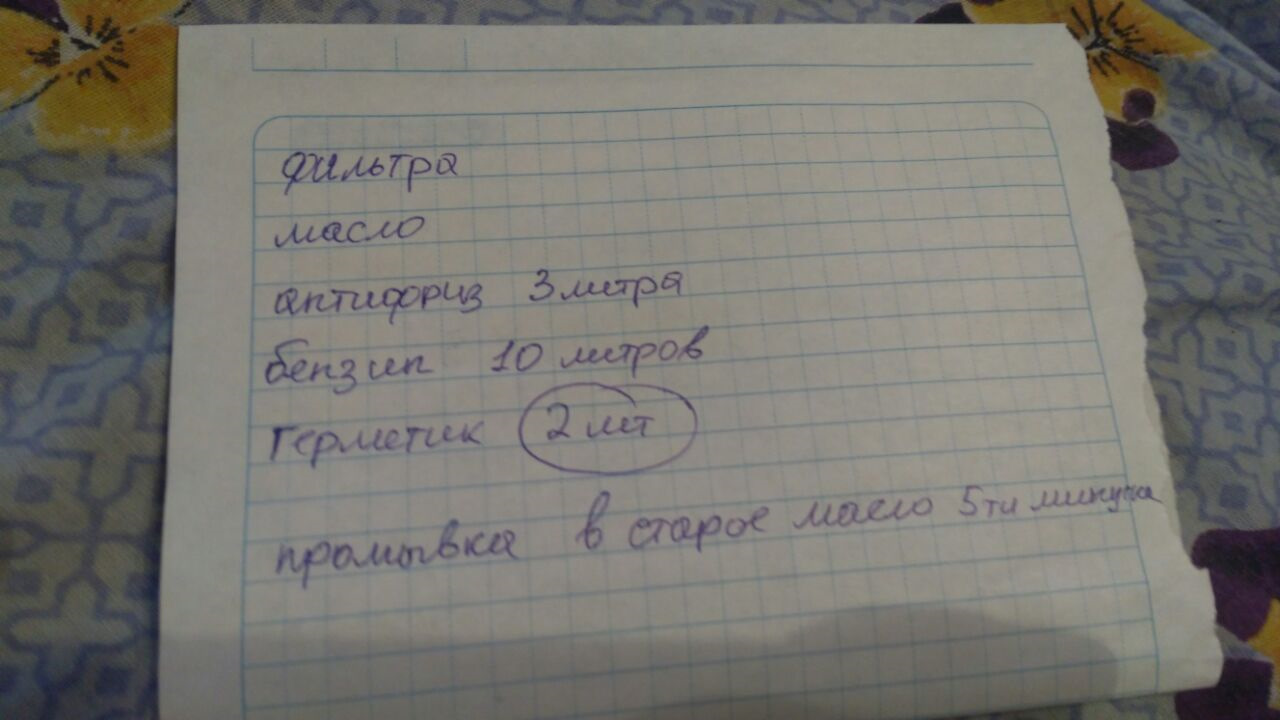 фильтра
масло
антифриз 3 литра
бензин 10 литров
Герметик 2 шт
промывка в старое масло 5ти минутка